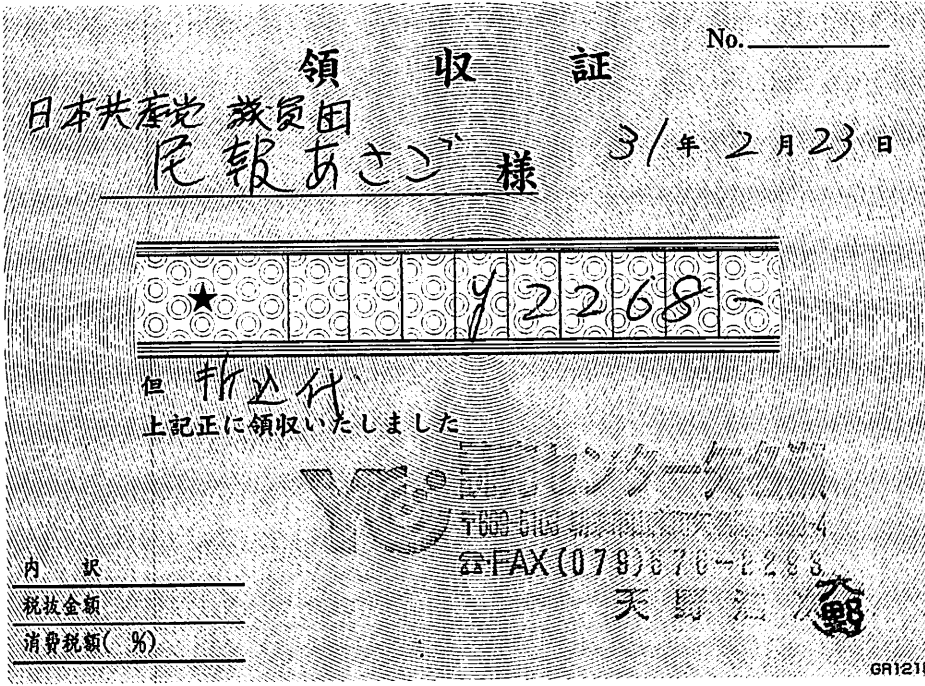 No.
領収証
日本共産党 議員団
民報あさご 様
31年2月23日
★ ¥2268-
但 折込代
上記正に領収いたしました
YC
センター
☎FAX(079)
天野
天野
内訳
税抜金額
消費税額( %)
GR121